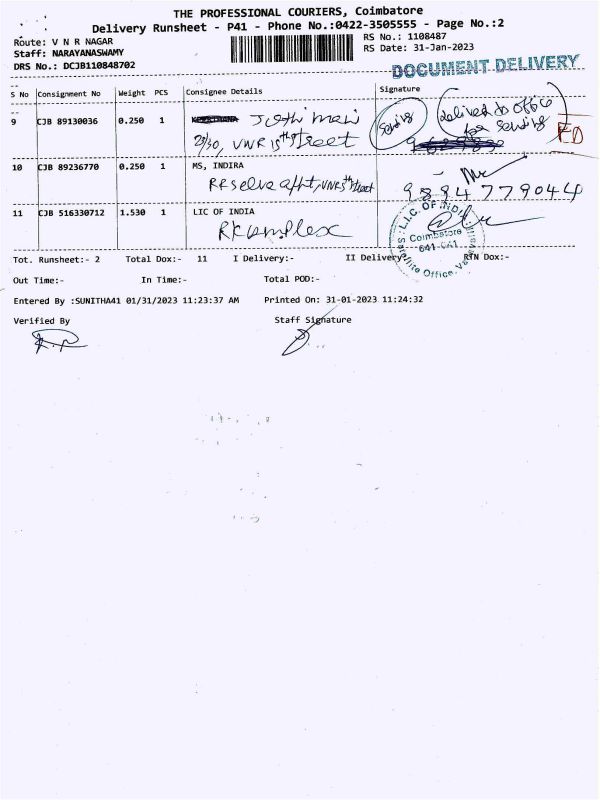 THE PROFESSIONAL COURIERS, Coimbatore
Delivery Runsheet - P41 - Phone No.:0422-3505555 - Page No.:2
Route: V N R NAGAR
Staff: NARAYANASWAMY
DRS No.: DCJB110848702
RS No.: 1108487
RS Date: 31-Jan-2023
DOCUMENT DELIVERY
S No Consignment No Weight PCS Consignee Details Signature
9 CJB 89130036 0.250 1
29/30, VNR 15th Street
Delivered to office
for sending
10 CJB 89236770 0.250 1 MS, INDIRA
9894779044
11 CJB 516330712 1.530 1 LIC OF INDIA
RK complex
L.I.C. OF INDIA
Coimbatore
641-041
Satellite Office
Tot. Runsheet:- 2 Total Dox:- 11 I Delivery:- II Delivery:- RTN Dox:-
Out Time:- In Time:- Total POD:-
Entered By :SUNITHA41 01/31/2023 11:23:37 AM Printed On: 31-01-2023 11:24:32
Verified By Staff Signature